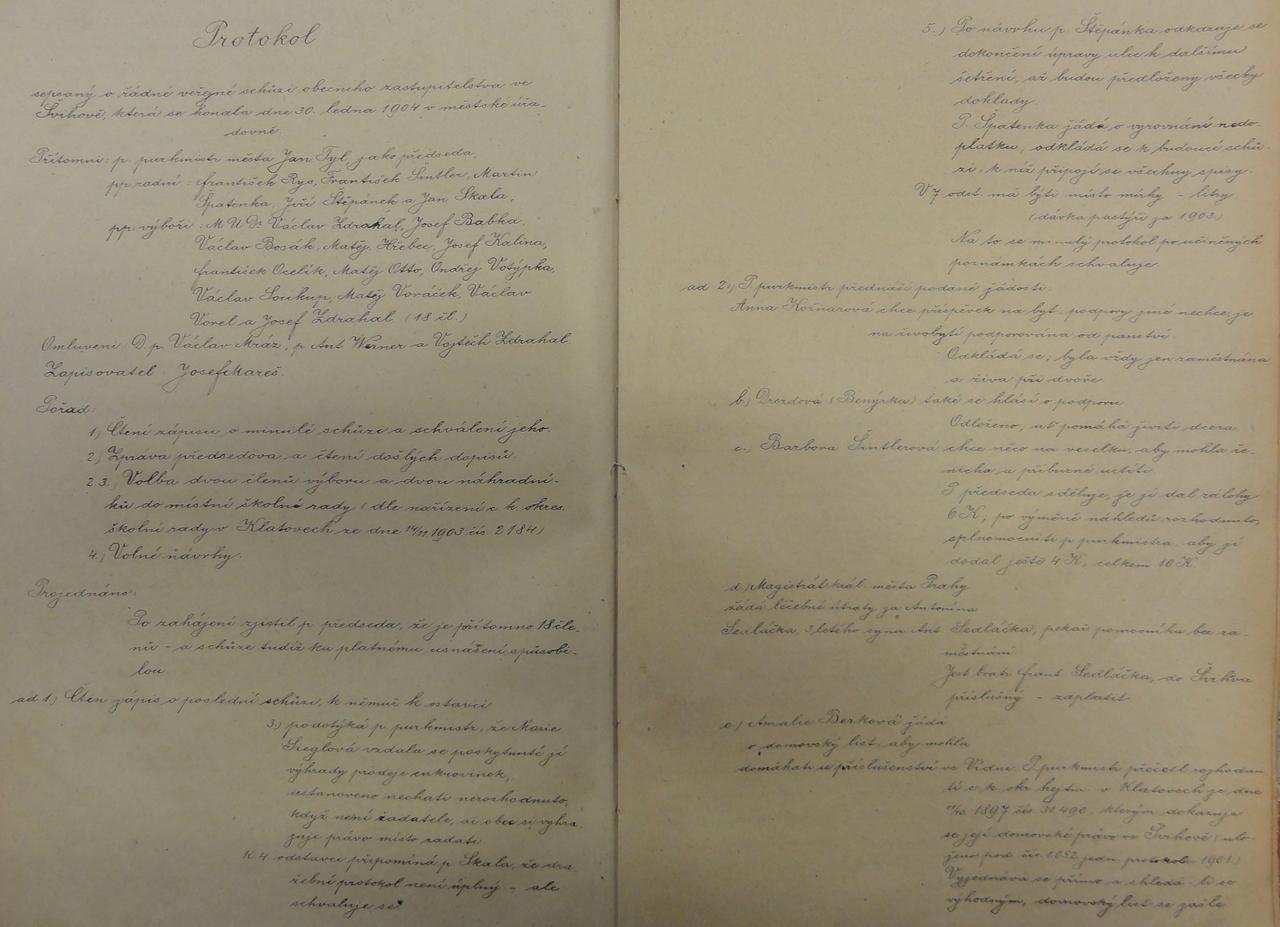 Protokol
sepsaný o řádné veřejné schůzi obecního zastupitelstva ve
Švihově, která se konala dne 30. ledna 1904 v městské úřa-
dovně.
Přítomni: p. purkmistr města Jan Tyl, jako předseda,
pp. radní: František Rys, František Šintler, Martin
Špatenka, Jiří Štěpánek a Jan Skala,
pp. výboři: MUDr Václav Zdrahal, Josef Babka,
Václav Bosák, Matěj Hřebec, Josef Kalina,
František Ocelík, Matěj Otto, Ondřej Votýpka,
Václav Soukup, Matěj Voráček, Václav
Vorel a Josef Zdrahal (18 čl.)
Omluveni: D. p. Václav Mráz, p. Ant Werner a Vojtěch Zdrahal
Zapisovatel: Josef Mareš.
Pořad:
1) Čtení zápisu o minulé schůzi a schválení jeho.
2.) Zpráva předsedova a čtení došlých dopisů.
2.3.) Volba dvou členů výboru a dvou náhradní-
ků do místní školní rady (dle nařízení c k okres.
školní rady v Klatovech ze dne 1903 čís. 2184)
4.) Volné návrhy.
Projednáno:
Po zahájení zjistil p. předseda, že je přítomno 18 čle-
nů - a schůze tudíž ku platnému usnášení způsobi-
lou.
ad 1.) Čten zápis o poslední schůzi, k němuž k ostavci
3.) podotýká p. purkmistr, že Marie
Sieglová vzdala se poskytnuté jí
výhrady prodeje cukrovinek,
ustanoveno nechati nerozhodnuto,
když není žadatele, ač obec si vyhra-
zuje právo místo zadati.
K 4. odstavci připomíná p. Skala, že dra-
žební protokol není úplný - ale
schvaluje se.
5.) Po návrhu p. Štěpánka odkazuje se
dokončení úpravy ulic k dalšímu
šetření, až budou předloženy všecky
doklady.
P. Špatenka žádá o vyrovnání nedo-
platku, odkládá se k budoucí schů-
zi, k níž připojí se všechny spisy.
V 7 odst. má býti místo mírky - litry
(dávka pastýři za 1903.)
Na to se minulý protokol po učiněných
poznámkách schvaluje.
ad 2.) P. purkmistr přednáší podané žádosti:
Anna Kožnarová chce příspěvek na byt, podpory jiné nechce, je
na živobytí podporována od panství.
Odkládá se, byla vždy jen zaměstnána
a živa při dvoře.
b.) Drezdová (Benýrka) také se hlásí o podporu
Odloženo, ať pomáhá živiti dcera.
c.) Barbora Šintlerová chce něco na veselku, aby mohla že-
nicha a příbuzné uctíti.
P. předseda sděluje, že jí dal zálohy
6 K, po výměně náhledů rozhodnuto,
splnomocniti p. purkmistra, aby jí
dodal ještě 4 K, celkem 10 K.
d.) Magistrát král. města Prahy
žádá léčebné útraty za Antonína
Sedláčka, 3letého syna Ant. Sedláčka, pekař. pomocníka bez za-
městnání.
Jest bratr Frant Sedláčka, do Švihova
příslušný - zaplatit.
e.) Amalie Berková žádá
o domovský list, aby mohla
domáhati se příslušenství ve Vídni. P. purkmistr přečetl rozhodnu-
tí c. k. okr. hejtm. v Klatovech ze dne
1897 čís 31.490, kterým dokazuje
se její domovské právo ve Švihově (ulo-
ženo pod čís. 1.052 jedn. protokolu 1901.)
Vyjednává se přímo a shledá-li se
výhodným, domovský list se zašle.